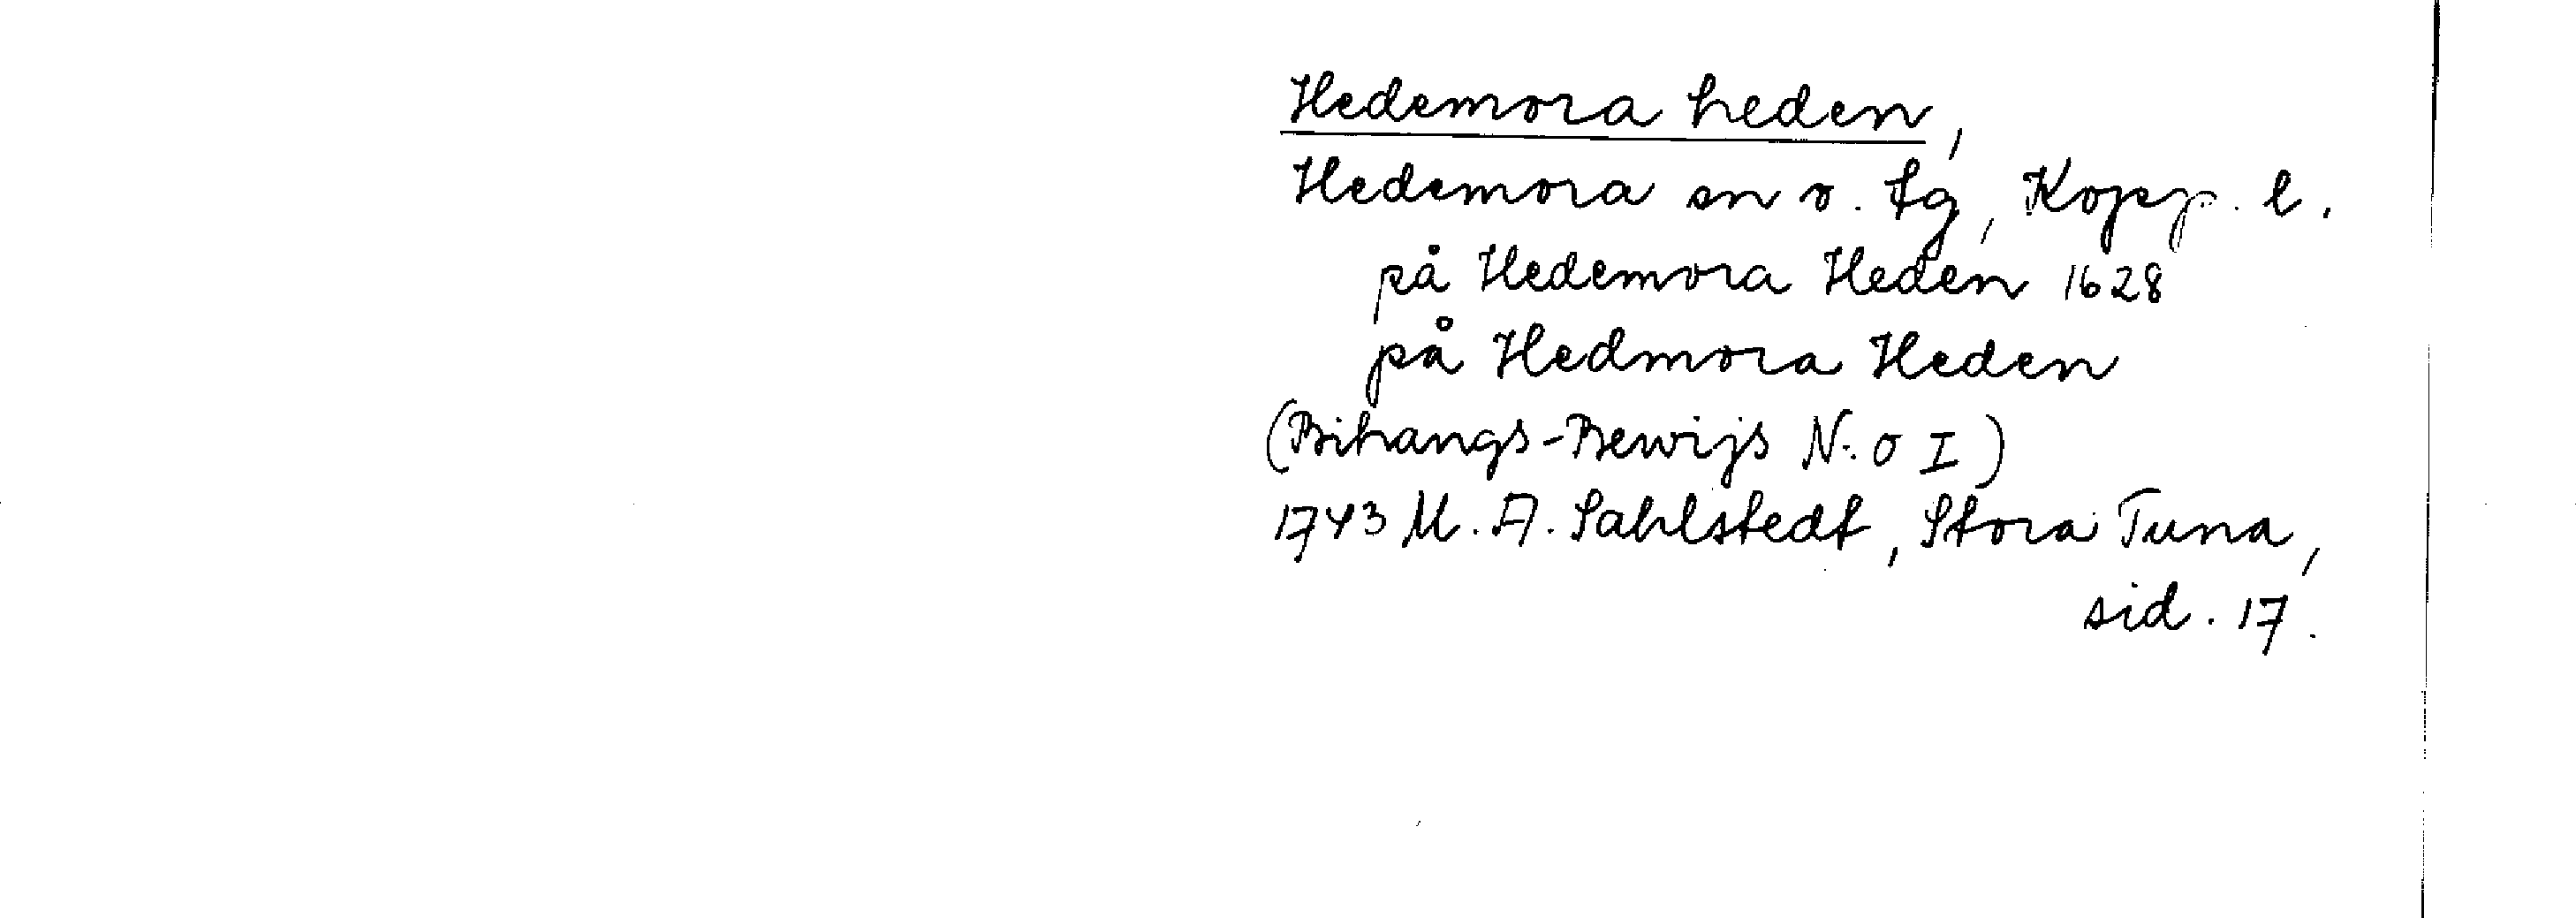 Hedemora heden,
Hedemora sn o. tg, Kopp. l.
på Hedemora Heden 1628
på Hedmora Heden
(Bihangs-Bewijs N:o I)
1743 M. A. Sahlstedt, Stora Tuna,
sid. 17.